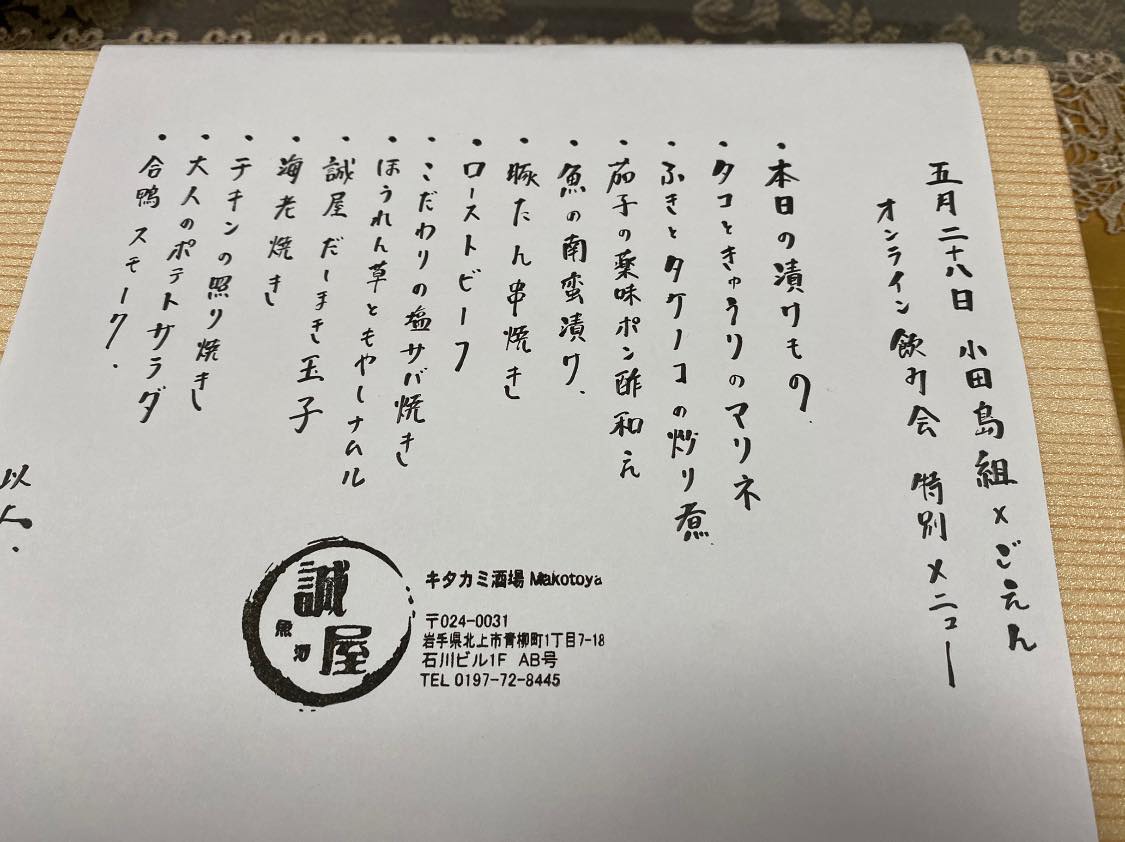 五月二十八日 小田島組×ごえん
オンライン飲み会 特別メニュー
・本日の漬けもの
・タコときゅうりのマリネ
・ふきとタケノコの炒り煮
・茄子の薬味ポン酢和え
・魚の南蛮漬け
・豚たん串焼き
・ローストビーフ
・こだわりの塩サバ焼き
・ほうれん草ともやしナムル
・誠屋だしまき玉子
・海老焼き
・チキンの照り焼き
・大人のポテトサラダ
・合鴨スモーク
誠屋
キタカミ酒場 Makotoya
〒024-0031
岩手県北上市青柳町1丁目7-18
石川ビル1F AB号
TEL 0197-72-8445